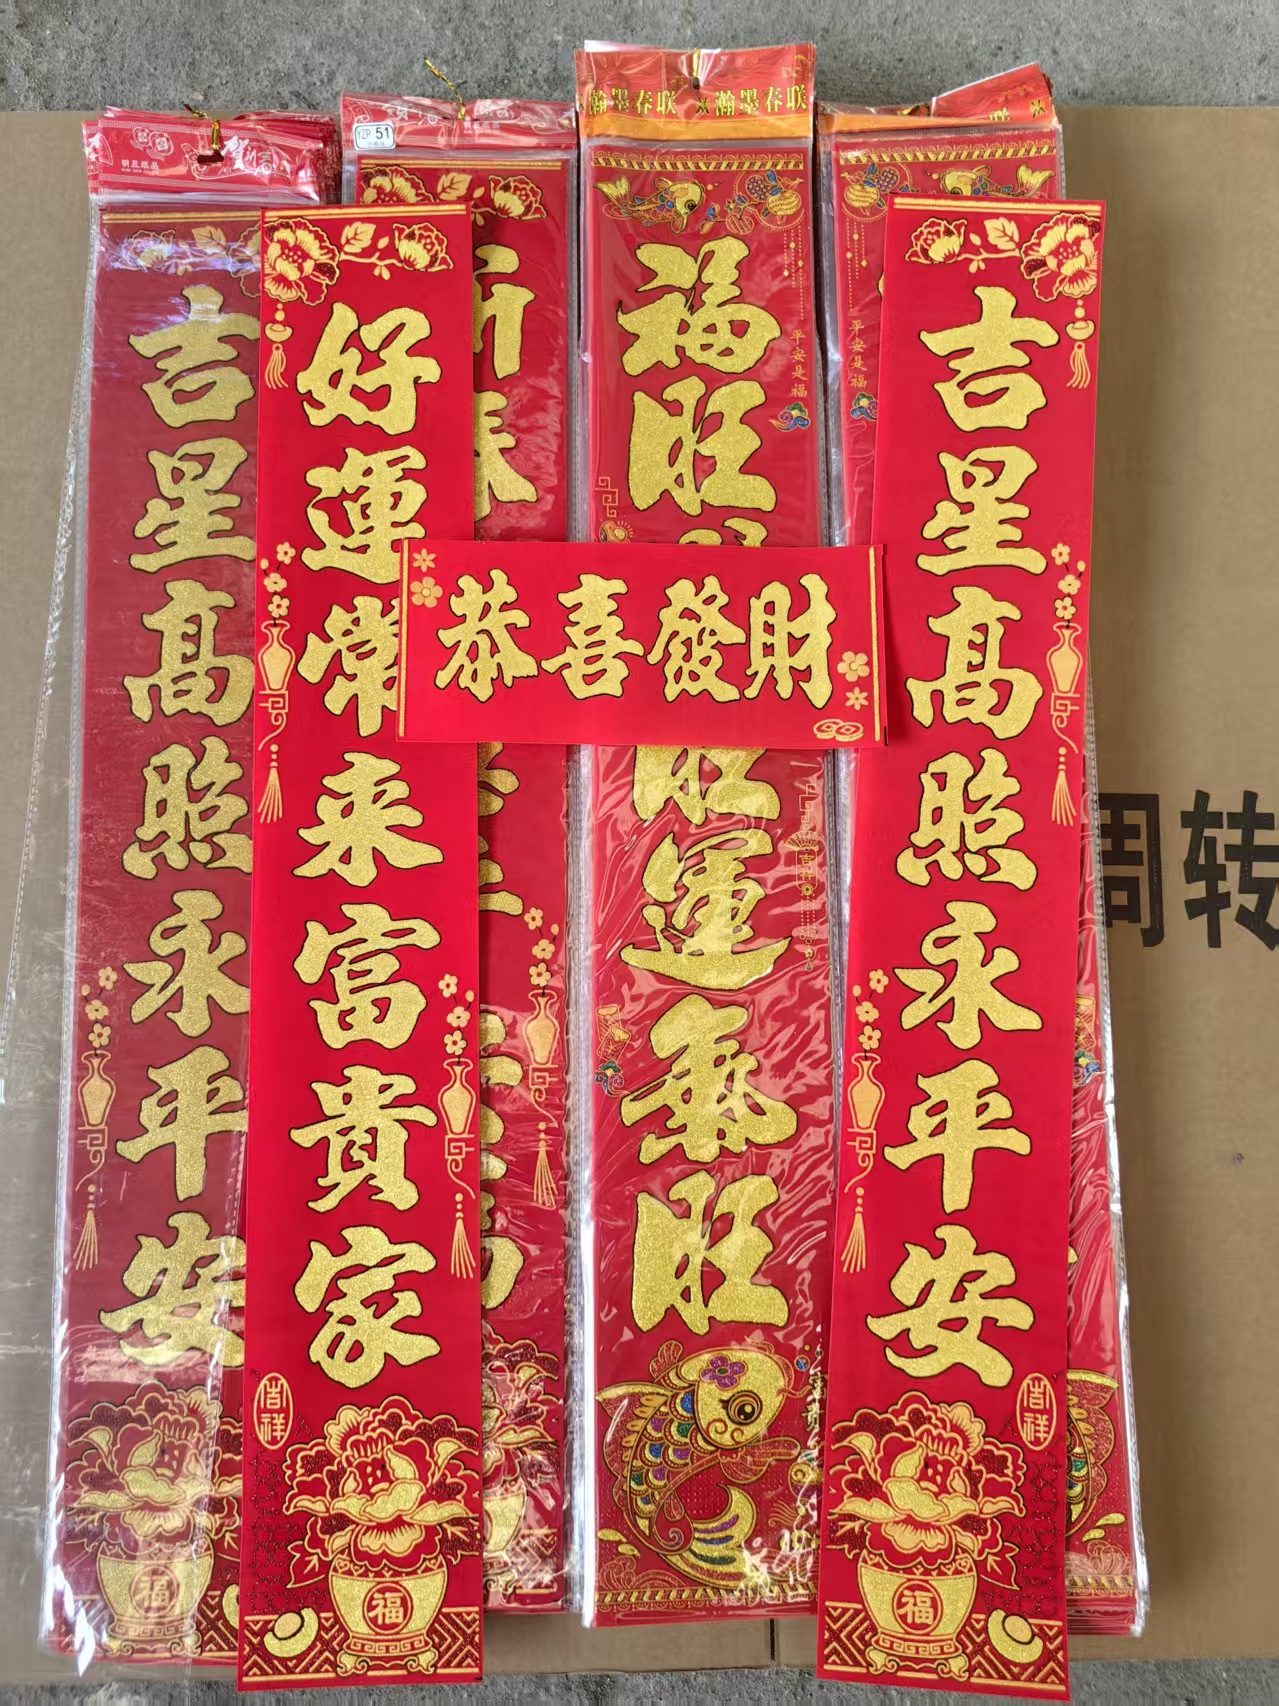 恭喜發財
吉星高照永平安
好運常来富貴家
吉星高照永平安
福旺
旺運氣旺
瀚墨春联
瀚墨春联
联
YZP 51
賀
平安是福
平安是福
吉祥
吉祥
吉祥
福
福
福
周转